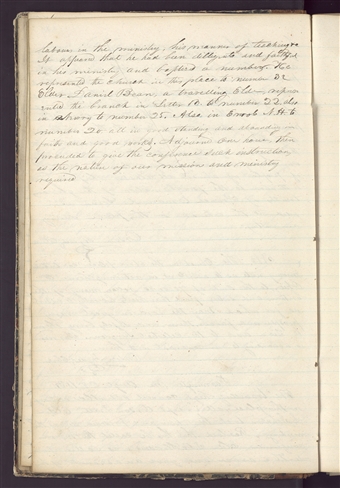 labour in the ministry, his manner of teaching &c
It appeared that he had been diligent and faithful
in his ministry and baptised a number. He
represented the Church in this place to number 32
Elder Daniel Bean, a travelling Elder, repre-
sented the branch in Letter B. to number 22 also
in Newry to number 25. Also in Errol N.H. to
number 20 all in good standing and abounding in
faith and good works. Adjourned one hour. Then
proceeded to give the conference such instruction
as the nature of our mission and ministry
required